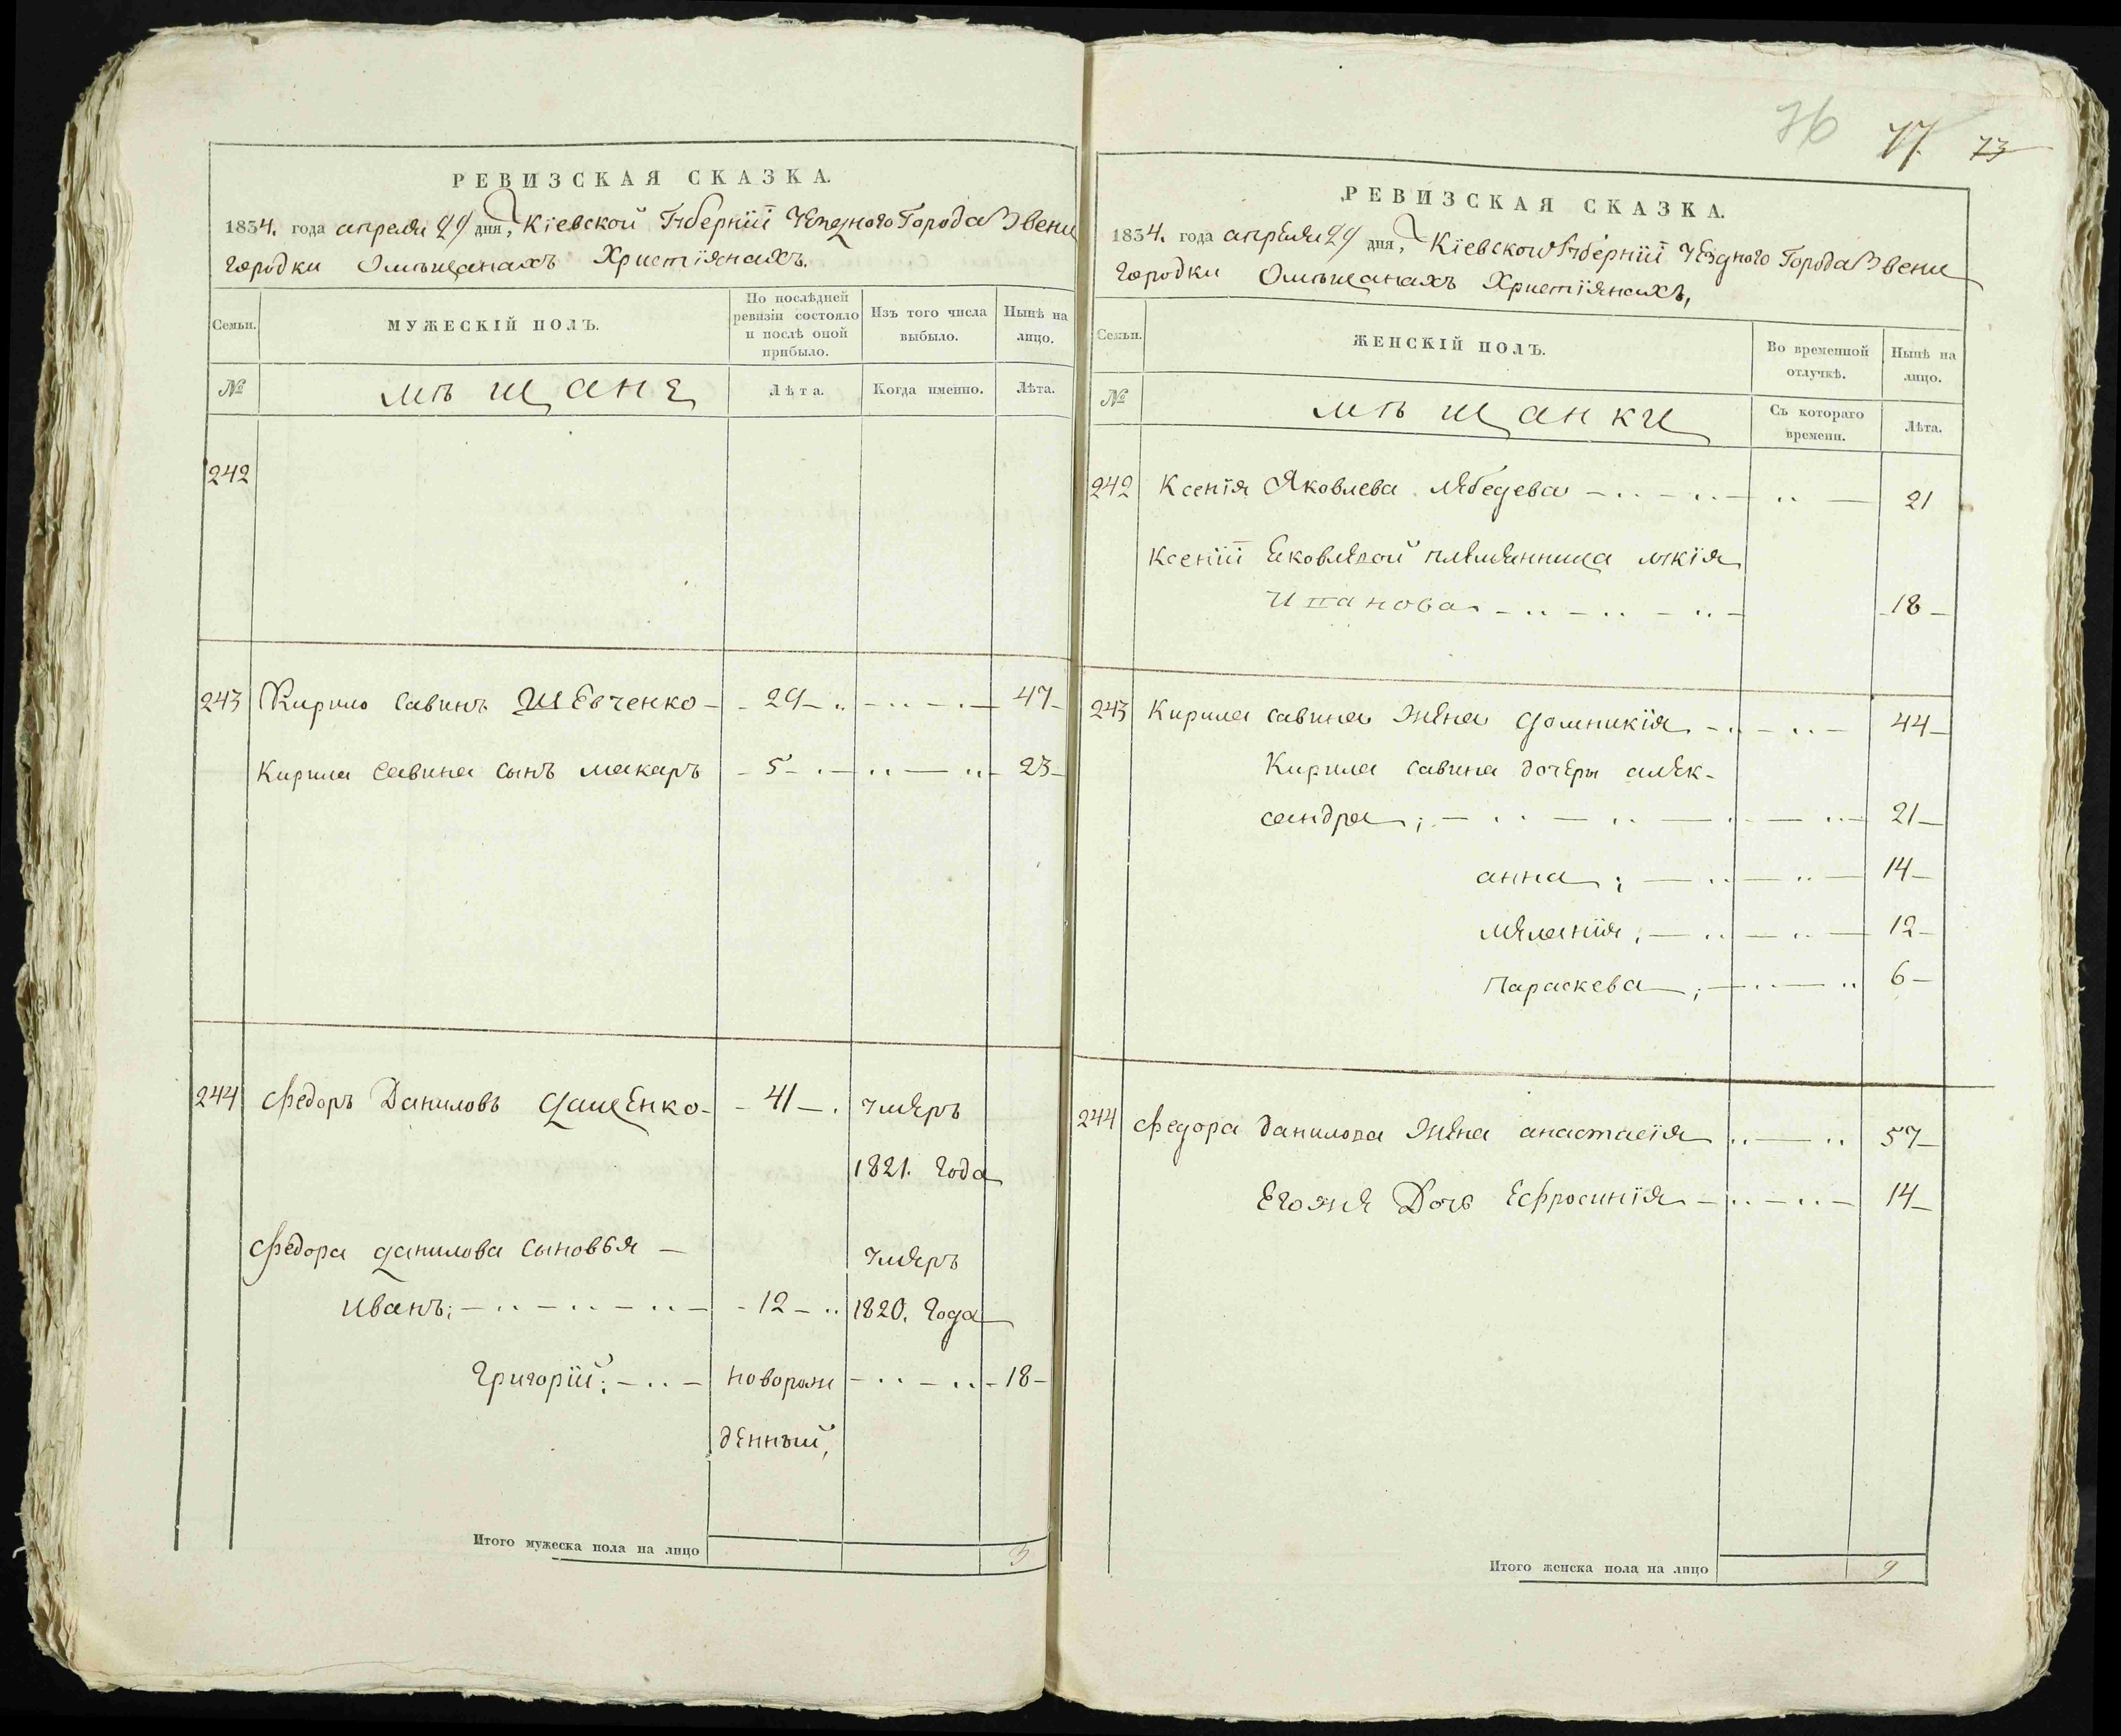 РЕВИЗСКАЯ СКАЗКА.
1834. года апреля 29 дня, Кіевской Губерніи Уезднаго Города Звени
городки Омѣщанахъ Христіянахъ.
Семьи. МУЖЕСКІЙ ПОЛЪ. По послѣдней ревизіи состояло и послѣ оной прибыло. Изъ того числа выбыло. Нынѣ на лицо.
№ мѣщане Лѣта. Когда именно. Лѣта.
242
243 Кирило Савинъ Шевченко - - 29 - 47 -
Кирила Савина сынъ макаръ - 5 - 23 -
244 Федоръ Даниловъ Дащенко - - 41 - умеръ
1821. года
Федора данилова сыновья - умеръ
иванъ; - 12 - 1820. года
григорій; - новорож - 18 -
денный,
Итого мужеска пола на лицо 3
76 77. 73
РЕВИЗСКАЯ СКАЗКА.
1834. года апреля 29 дня, Кіевской Губерніи Уезднаго Города Звени
городки Омѣщанахъ Христіянахъ,
Семьи. ЖЕНСКІЙ ПОЛЪ. Во временной отлучкѣ. Нынѣ на лицо.
№ мѣщанки Съ котораго времени. Лѣта.
242 Ксенія Яковлева Лебедева - 21
Ксеніи Яковлевой племянница
18 -
243 Кирила савина жена домникія - 44 -
Кирила савина дочеры алек-
сандра; - 21 -
анна; - 14 -
меланія; - 12 -
параскева; - 6 -
244 Федора данилова жена анастасія - 57 -
Егожя Дочь Ефросинія - 14 -
Итого женска пола на лицо 9